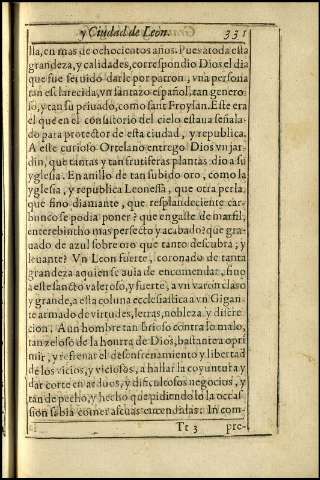 y Ciudad de Leon. 331
lla, en mas de ochocientos años. Pues a toda esta
grandeza, y calidades, correspondio Dios el dia
que fue seruido darle por patron, vna persona
tan esclarecida, vn santazo español, tan genero-
so, y tan su priuado, como sant Froylan. Este era
el que en el consistorio del cielo estaua señala-
do para protector de esta ciudad, y republica.
A este curioso Ortelano entrego Dios vn jar-
din, que tantas y tan frutiferas plantas dio a su
yglesia. En anillo de tan subido oro, como la
yglesia, y republica Leonessa, que otra perla,
que fino diamante, que resplandeciente car-
bunco se podia poner? que engaste de marfil,
en terebintho mas perfecto y acabado? que gra-
uado de azul sobre oro que tanto descubra, y
leuante? Vn Leon fuerte, coronado de tanta
grandeza a quien se auia de encomendar, sino
a este sancto valeroso, y fuerte, a vn varon claro
y grande, a esta coluna ecclesiastica a vn Gigan-
te armado de virtudes, letras, nobleza y discre
cion. A vn hombre tan brioso contra lo malo,
tan zeloso de la honrra de Dios, bastante a opri
mir, y refrenar el desenfrenamiento y libertad
de los vicios, y viciosos, a hallar la coyuntura y
dar corte en arduos, y dificultosos negocios, y
tan de pecho, y hecho que pidiendo lo la occas-
sion sabia comer ascuas encendidas. In com-
Tt 3 pre-